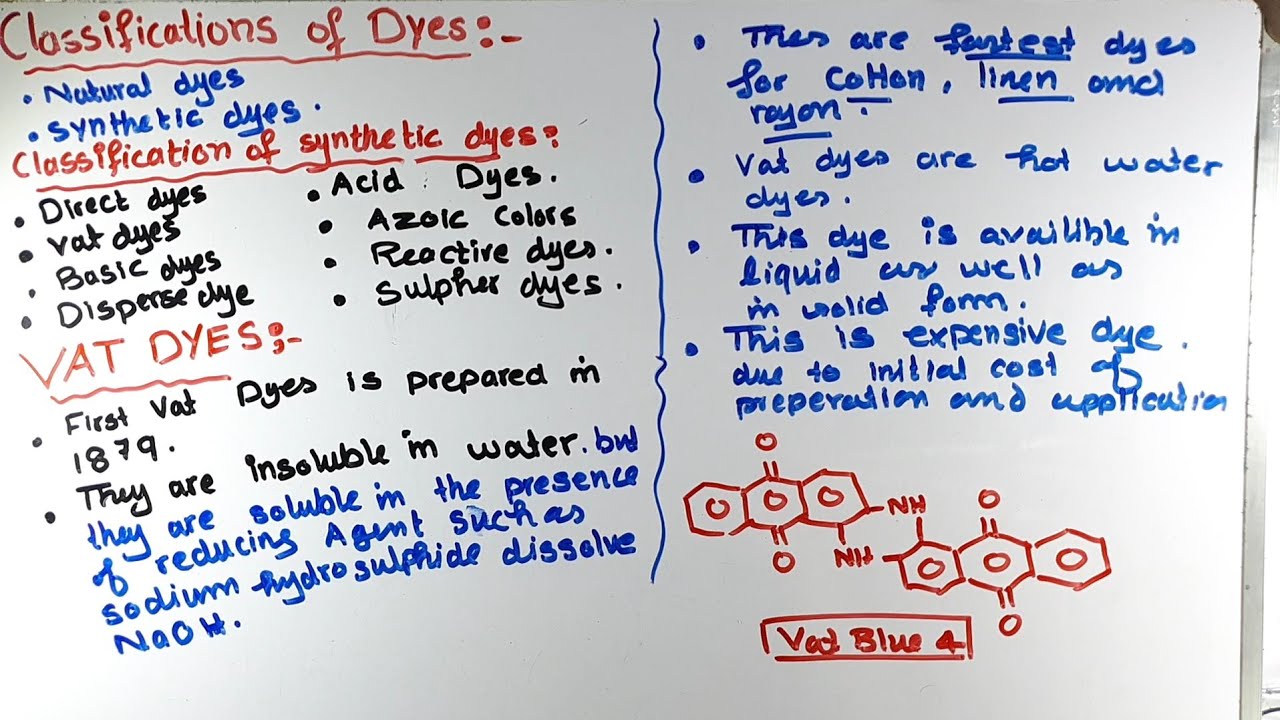 Classifications of Dyes:-
• Natural dyes
• Synthetic dyes.
Classification of synthetic dyes:
• Direct dyes
• Vat dyes
• Basic dyes
• Disperse dye
• Acid Dyes.
• Azoic Colors
• Reactive dyes.
• Sulpher dyes.
VAT DYES:-
• First Vat Dyes is prepared in
1879.
• They are insoluble in water. but
they are soluble in the presence
of reducing Agent such as
sodium hydrosulphide dissolve
NaOH.
• Thes are fastest dyes
for Cotton, linen and
rayon.
• Vat dyes are hot water
dyes.
• This dye is availible in
liquid as well as
in solid form.
• This is expensive dye.
due to initial cost of
preperation and application
O
O
NH
NH
O
O
Vat Blue 4